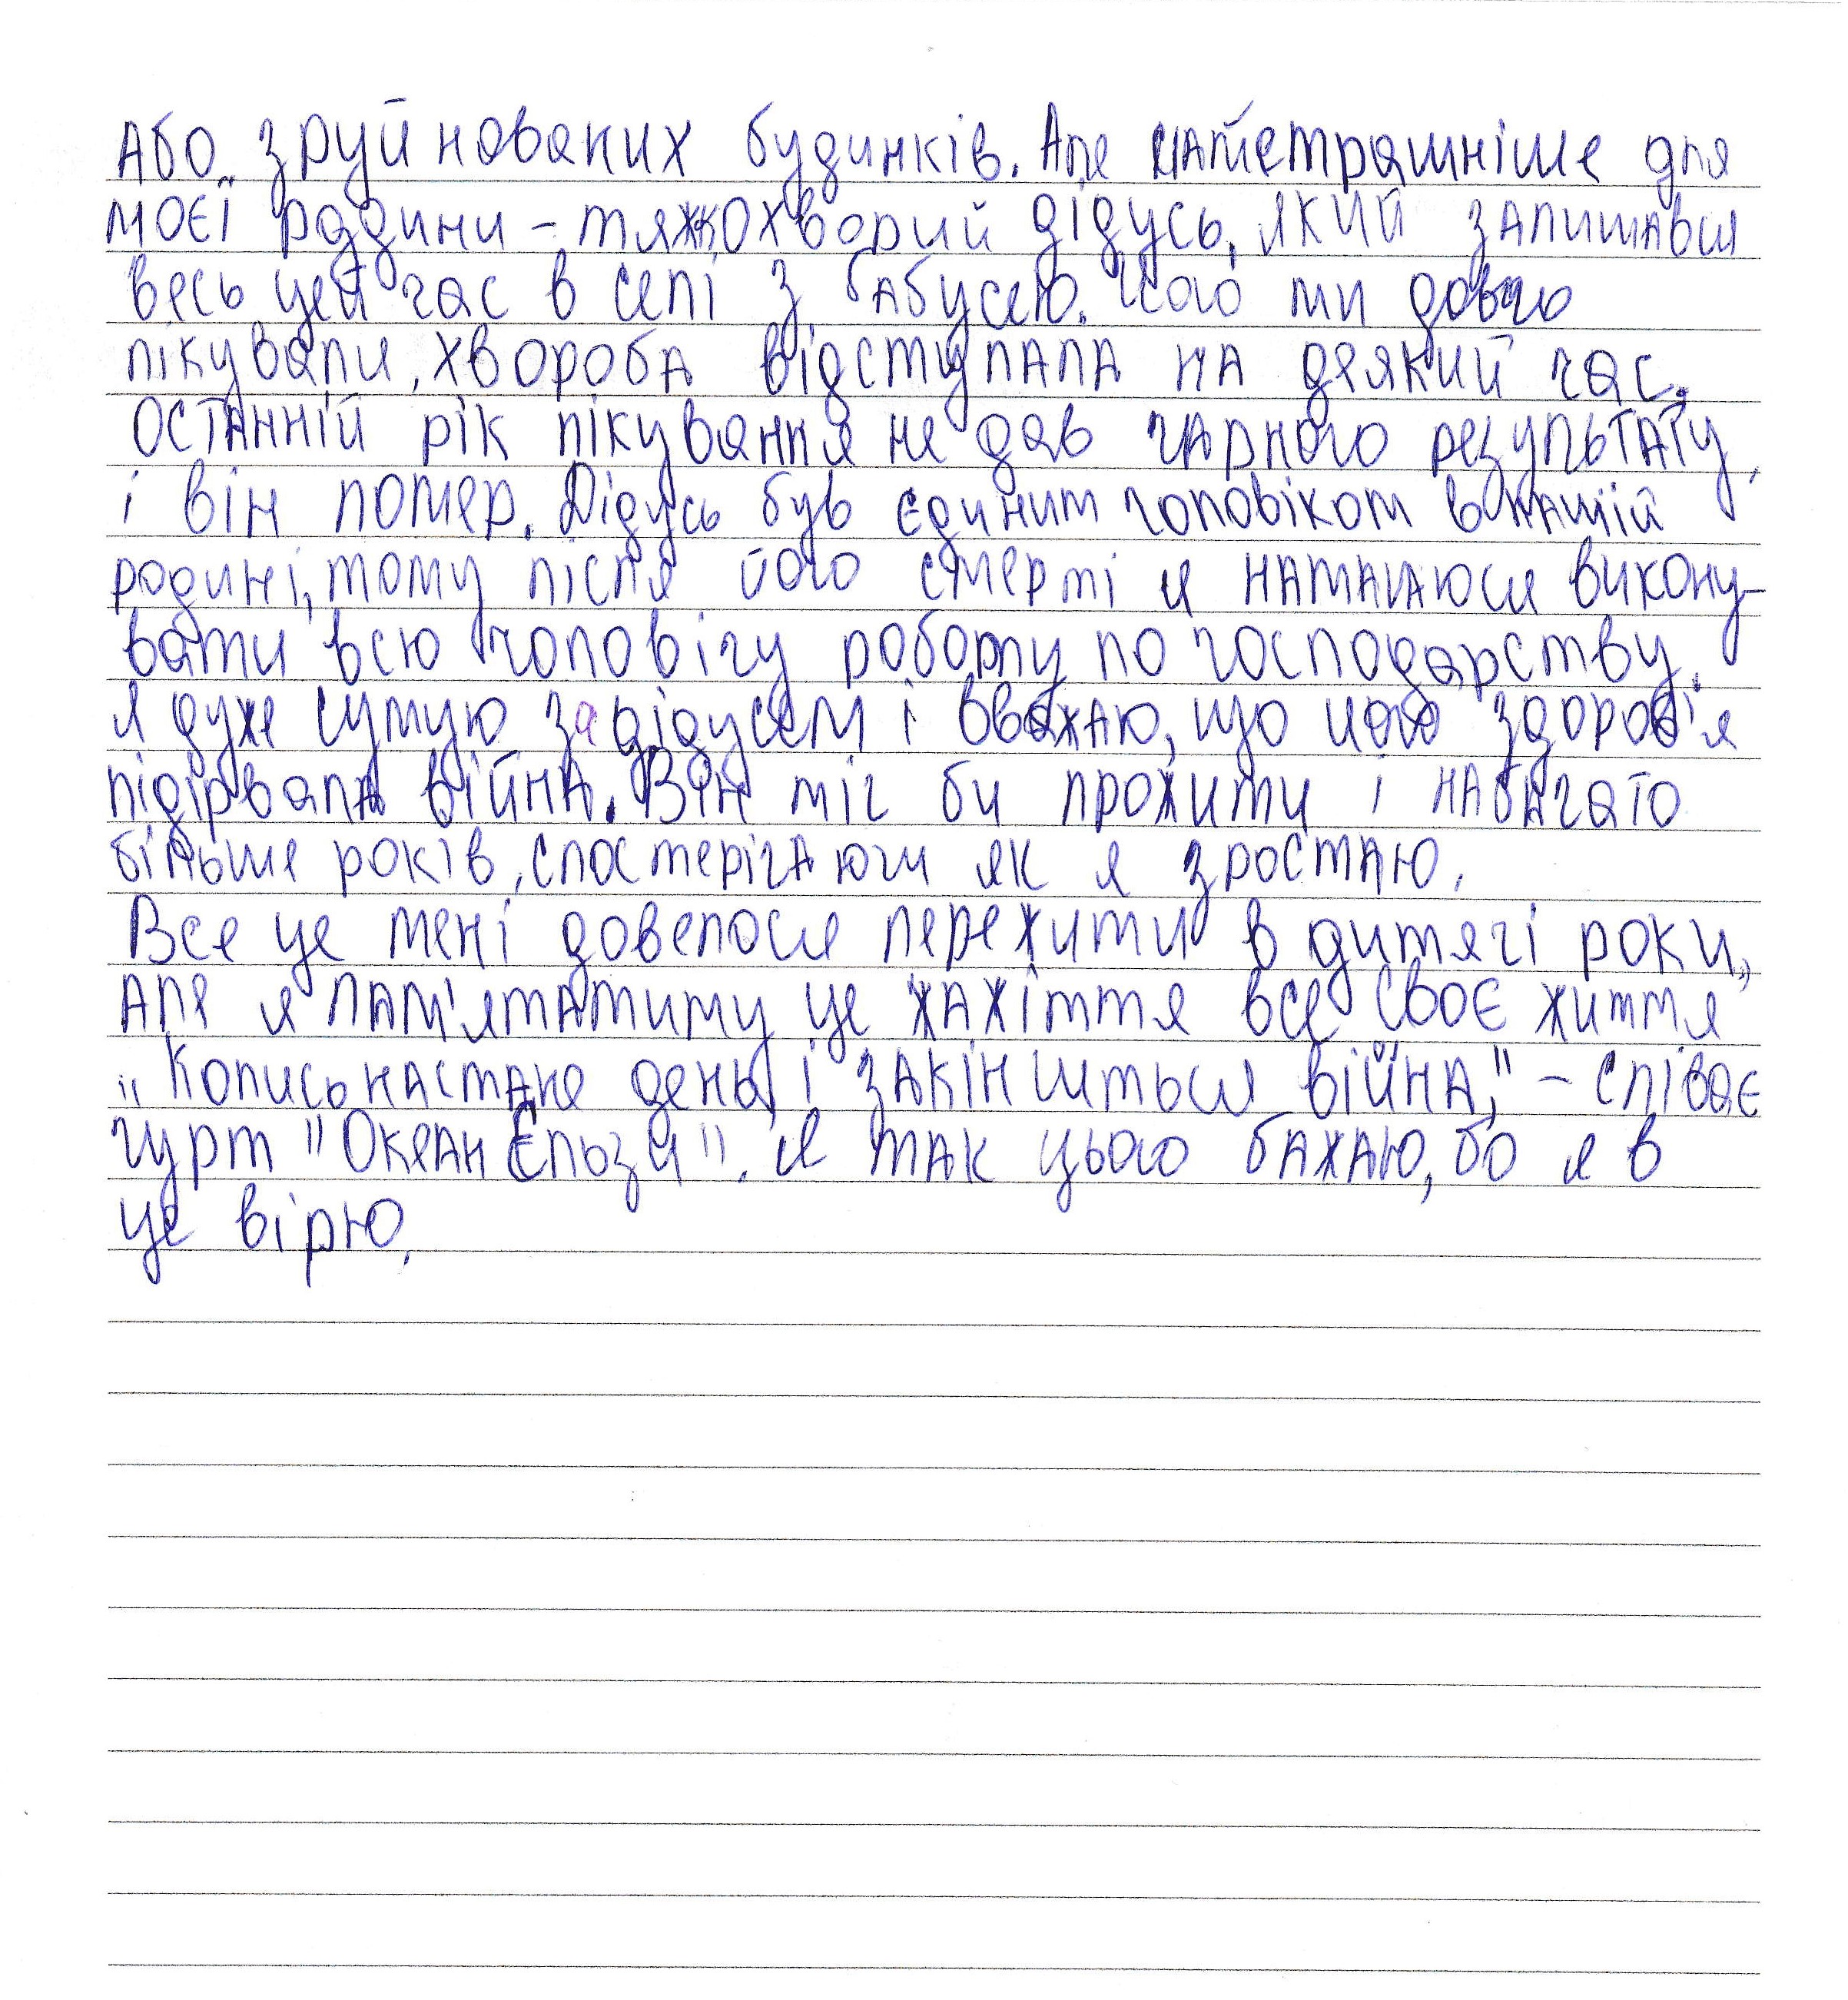 Або зруйнованих будинків. Але найстрашніше для
моєї родини – тяжкохворий дідусь, який залишався
весь цей час в селі з бабусею. Його ми довго
лікували, хвороба відступала на деякий час.
Останній рік лікування не дав гарного результату,
і він помер. Дідусь був єдиним чоловіком в нашій
родині, тому після його смерті я намагаюся викону-
вати всю чоловічу роботу по господарству.
Я дуже сумую за дідусем і вважаю, що його здоров'я
підірвала війна. Він міг би прожити і набагато
більше років, спостерігаючи як я зростаю.
Все це мені довелося пережити в дитячі роки,
але я пам'ятатиму це жахіття все своє життя
"Колись настане день, і закінчиться війна," – співає
гурт "Океан Єльзи". Я так цього бажаю, бо я в
це вірю.